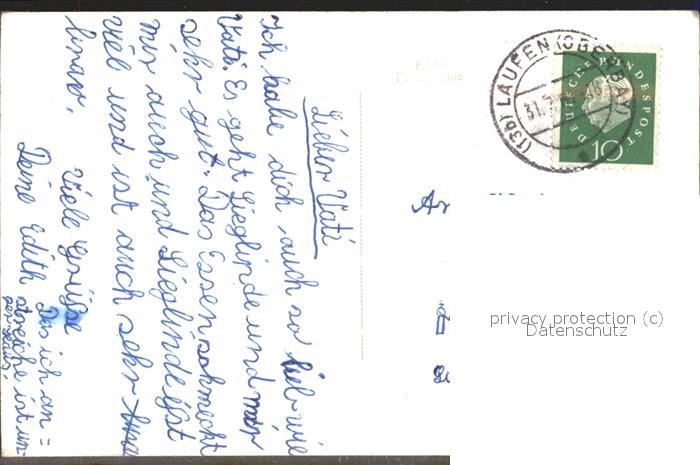 Lieber Vati
Ich habe dich auch so lieb wie
Vati. Es geht Sieglinde und mir
sehr gut. Das Essen schmeckt
mir auch und Sieglinde ißt
viel und ist auch sehr
Viele Grüße
Deine Edith
Das ich an=
streiche ist un-
ser Haus.
Echte
Photographie
(13b) LAUFEN (OBERBAY)
31.7.
DEUTSCHE BUNDESPOST
10
An
privacy protection (c)
Datenschutz